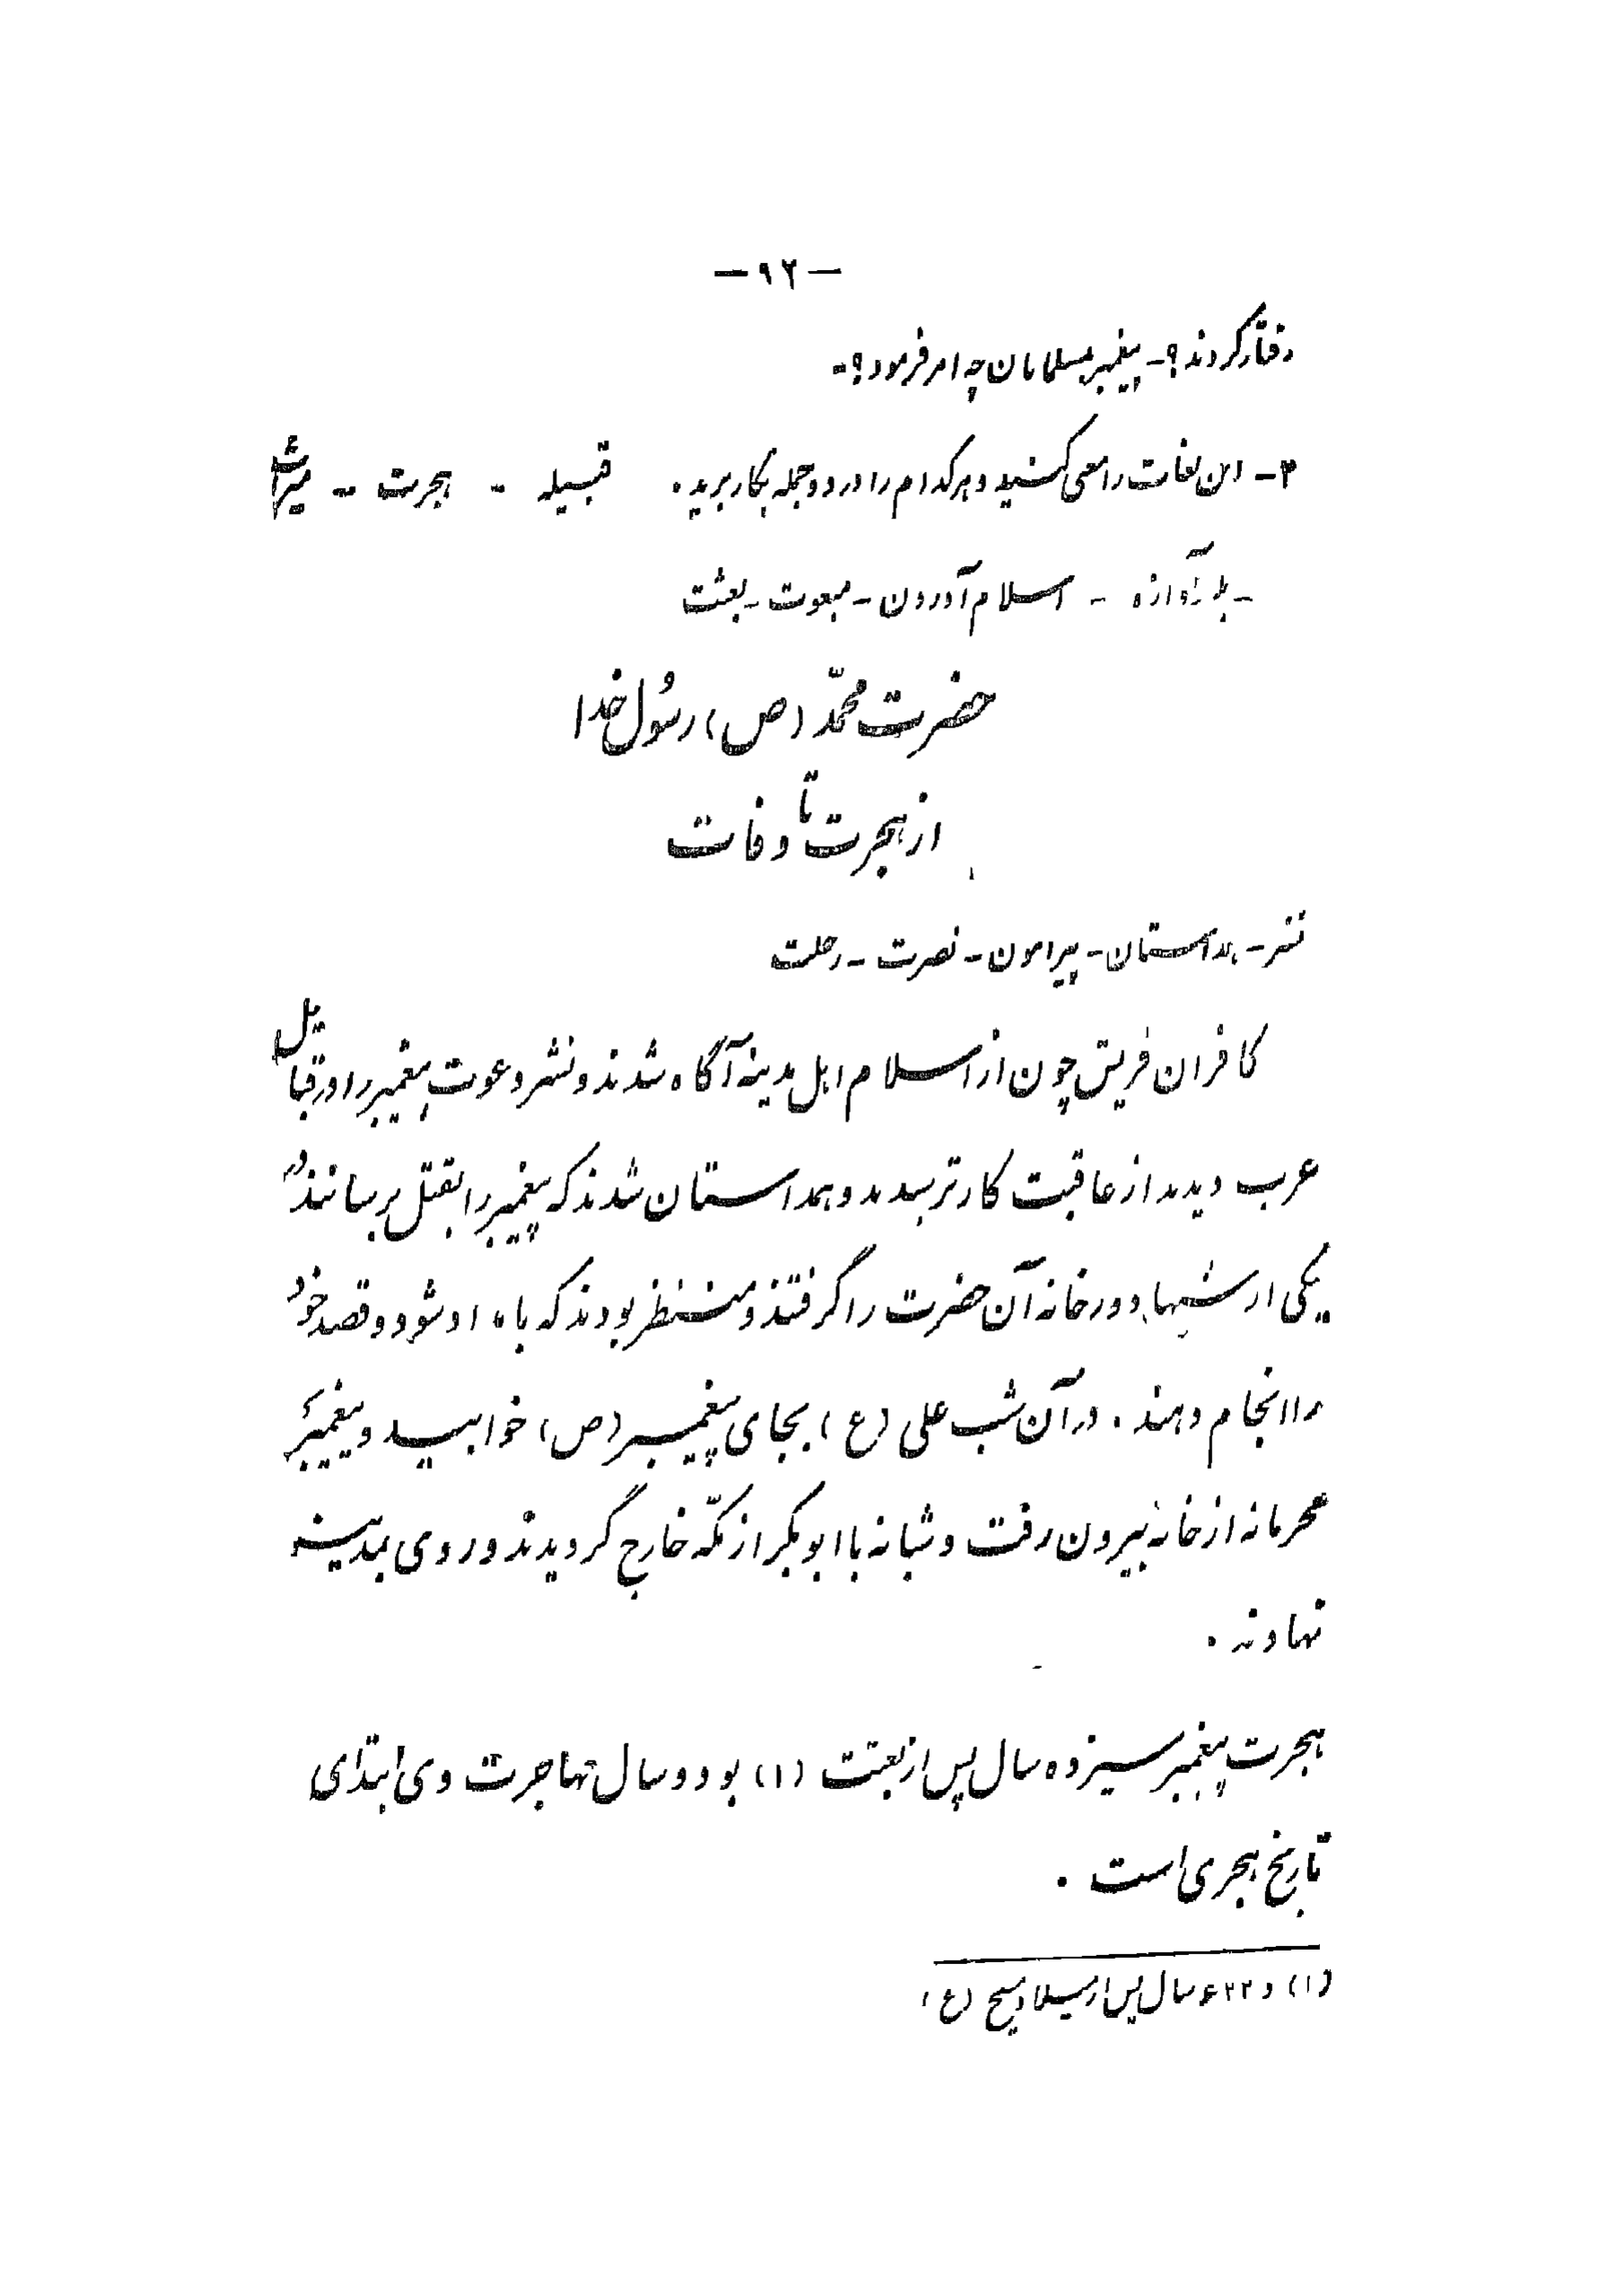 — ۹۲ —
رفتار کردند؟ - پیغمبر بمسلمانان چه امر فرمود؟ -
۳- این لغات را معنی کنید و هر کدام را در دو جمله بکار برید . قبیله - هجرت - میراث
- بلند آوازه - اسلام آوردن - مبعوث - بعثت
حضرت محمّد (ص) رسُول خدا
از هجرت تا وفات
نشر - همداستان - پیرامون - نصرت - رحلت
کافران قریش چون از اسلام اهل مدینه آگاه شدند و نشر دعوت پیغمبر را در قبایل
عرب دیدند از عاقبت کار ترسیدند و همداستان شدند که پیغمبر را بقتل برسانند در
یکی از شبها دور خانه آن حضرت را گرفتند و منتظر بودند که بامداد شود و قصد خود
را انجام دهند . در آن شب علی (ع) بجای پیغمبر (ص) خوابید و پیغمبر
محرمانه از خانه بیرون رفت و شبانه با ابوبکر از مکّه خارج گردیدند و روی بمدینه
نهادند .
هجرت پیغمبر سیزده سال پس از بعثت (۱) بود و سال مهاجرت وی ابتدای
تاریخ هجری است .
(۱) و ۶۲۲ سال پس از میلاد مسیح (ع)